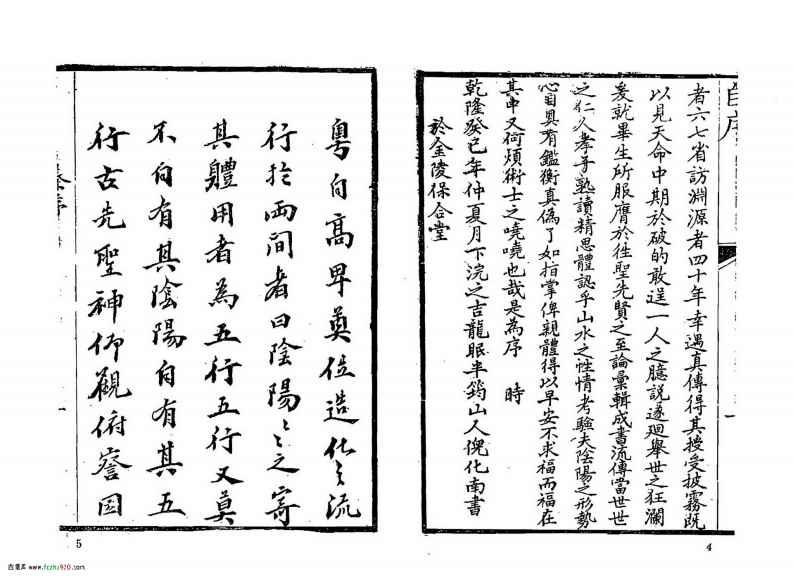 者六七省訪淵源者四十年幸遇真傳得其授受披霧既
以見天命中期於破的敢逞一人之臆說遂廻舉世之狂瀾
爰就畢生所服膺於徃聖先賢之至論彙輯成書流傳當世世
之仁人孝子熟讀精思體認乎山水之性情考驗夫陰陽之形勢
心目具有鑑衡真偽了如指掌俾親體得以早安不求福而福在
其中又何煩術士之嘵嘵也哉是為序 時
乾隆癸巳年仲夏月下浣之吉龍眠半筠山人倪化南書
於金陵保合堂
4
粵自高卑奠位造化之流
行於両間者曰陰陽〻之寄
其體用者為五行五行又莫
不自有其陰陽自有其五
行古先聖神仰觀俯詧因
5
古易库 www.fczhy920.com